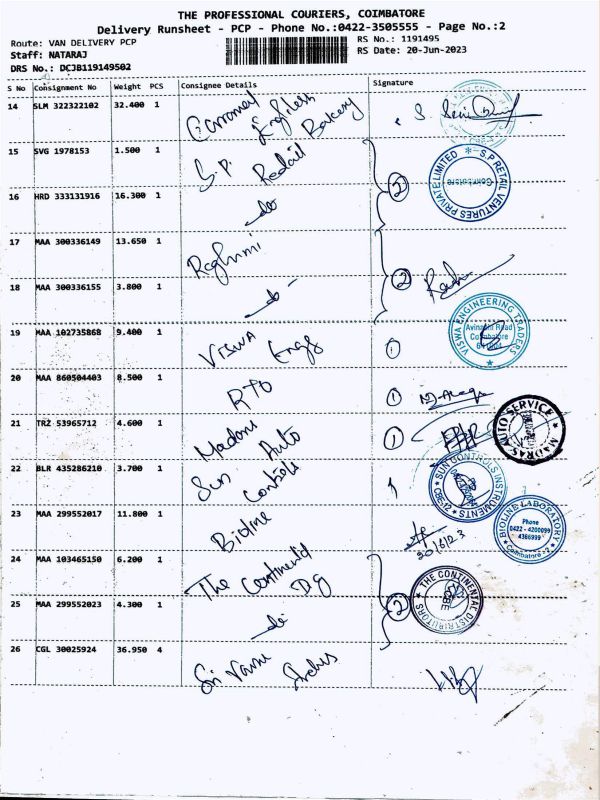 THE PROFESSIONAL COURIERS, COIMBATORE
Delivery Runsheet - PCP - Phone No.:0422-3505555 - Page No.:2
Route: VAN DELIVERY PCP
RS No.: 1191495
Staff: NATARAJ
RS Date: 20-Jun-2023
DRS No.: DCJB119149502
S No Consignment No Weight PCS Consignee Details Signature
14 SLM 322322102 32.400 1 Bakery
15 SVG 1978153 1.500 1 S.P. Retail
16 HRD 333131916 16.300 1 -do- 2
S.P RETAIL VENTURES PRIVATE LIMITED
Coimbatore
17 MAA 300336149 13.650 1
18 MAA 300336155 3.800 1 2
19 MAA 102735868 9.400 1 VISWA Engg 1
VISWA ENGINEERING TRADERS
Avinashi Road
Coimbatore
20 MAA 860504403 8.500 1 RTO 1
21 TRZ 53965712 4.600 1 Auto 1
MADRAS AUTO SERVICE
22 BLR 435286210 3.700 1 Sun Controls 1
SUN CONTROLS INSTRUMENTS
23 MAA 299552017 11.800 1 Bioline
20/6/23
BIOLINE LABORATORY
Phone
0422 - 4200099
4366999
Coimbatore - 2
24 MAA 103465150 6.200 1 The Continental
25 MAA 299552023 4.300 1 -do- 2
THE CONTINENTAL DISTRIBUTORS
CBE
26 CGL 30025924 36.950 4 Sri